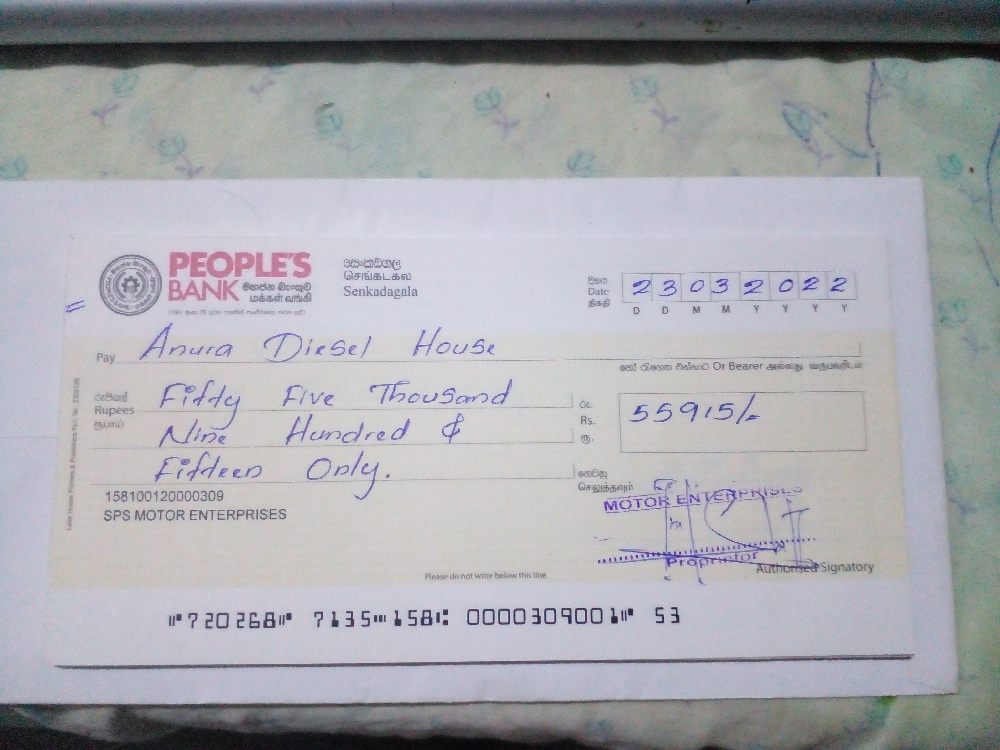 PEOPLE'S
BANK මහජන බැංකුව
மக்கள் வங்கி
සෙංකඩගල
செங்கடகல
Senkadagala
දිනය
Date
திகதி
2 3 0 3 2 0 2 2
D D M M Y Y Y Y
Pay Anura Diesel House
හෝ රැගෙන එන්නාට Or Bearer அல்லது வருபவரிடம்
රුපියල්
Rupees
ரூபாய்
Fifty Five Thousand
Nine Hundred &
Fifteen Only.
රු.
Rs.
ரூ.
55915/-
ගෙවනු
செலுத்தவும்
158100120000309
SPS MOTOR ENTERPRISES
MOTOR ENTERPRISES
Proprietor
Authorised Signatory
Please do not write below this line
⑈720268⑈ 7135⑉158⑆ 0000309001⑈ 53